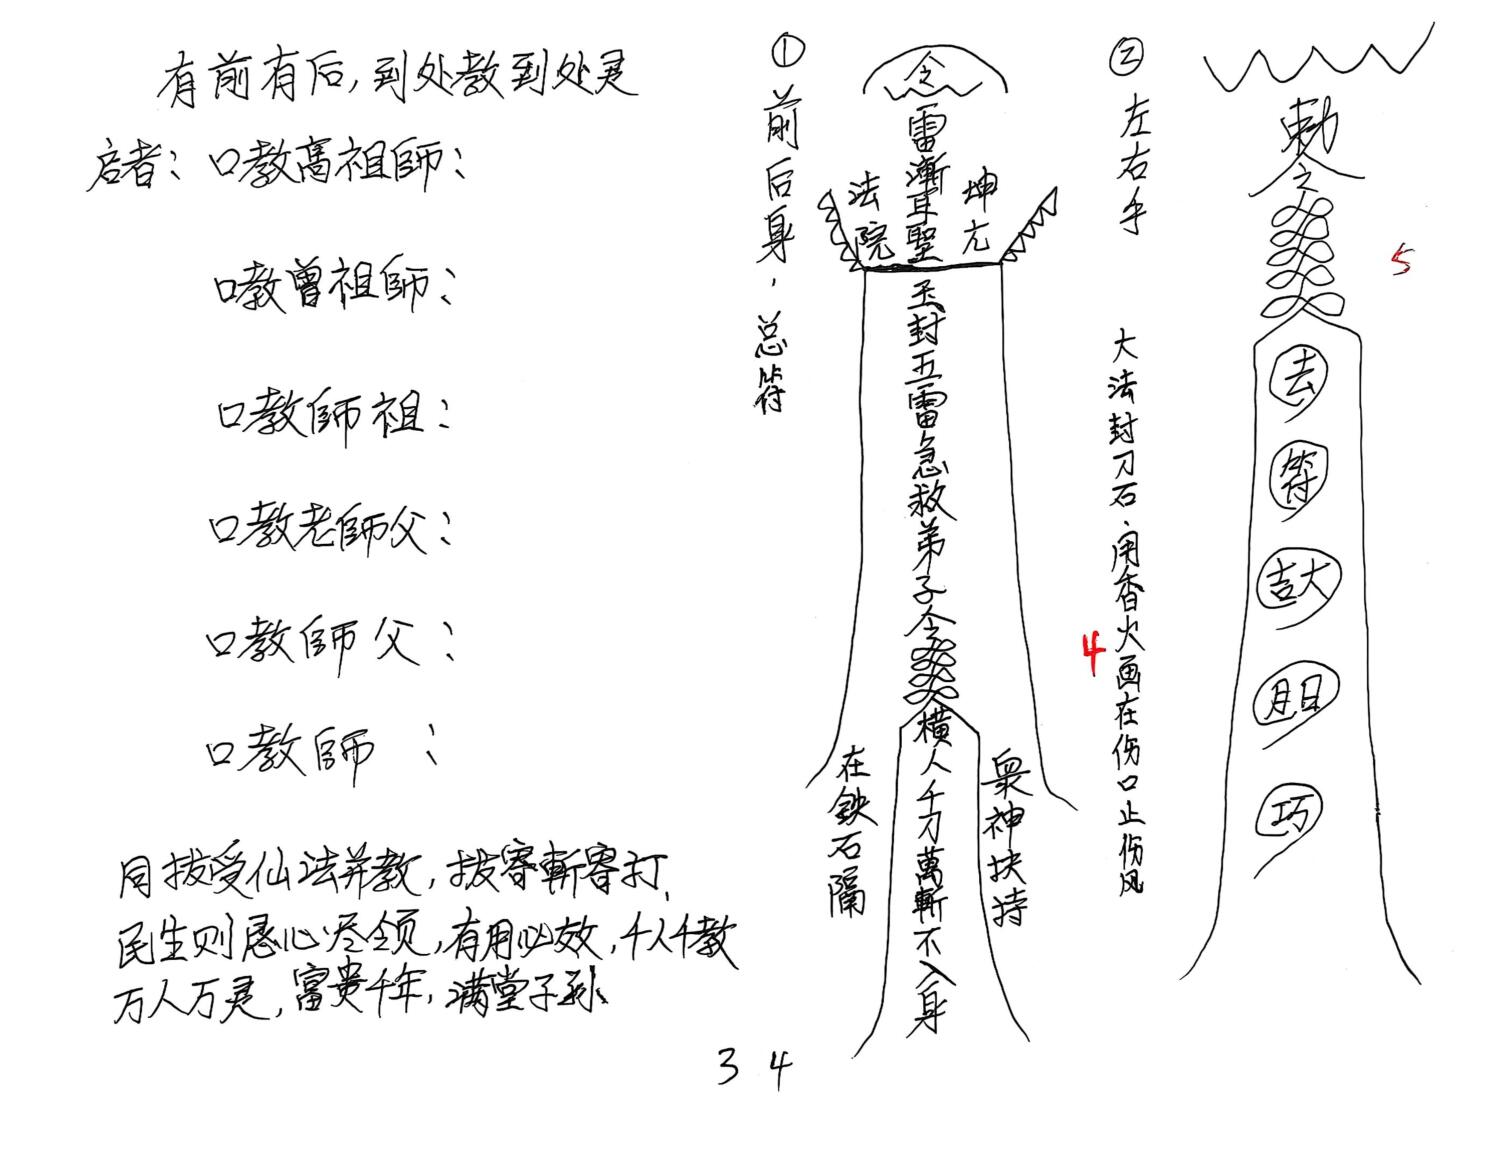 有前有后,到处教到处灵
启者：口教高祖師：
口教曾祖師：
口教師祖：
口教老師父：
口教師父：
口教師：
同拔受仙法并教,拔寄斬寄打,
民生则愿心尽领,有用必效,千人千教
万人万灵,富贵千年,满堂子孙
①前后身，总符
令
雷漸耳聖
法院
坤元
玉封五雷急救弟子令
橫人千刀萬斬不入身
在鉄石隔
衆神扶持
②左右手
大法封刀石.用香火画在伤口止伤风
4
勅令
5
去
符
吉大
月日
巧
34